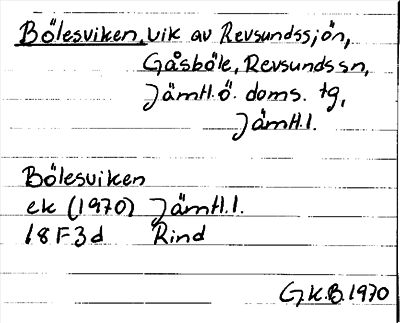 Bölesviken, vik av Revsundssjön,
Gåsböle, Revsunds sn,
Jämtl. ö. doms. tg,
Jämtl.l.
Bölesviken
ek (1970) Jämtl.l.
18F3d Rind
G.K.B. 1970